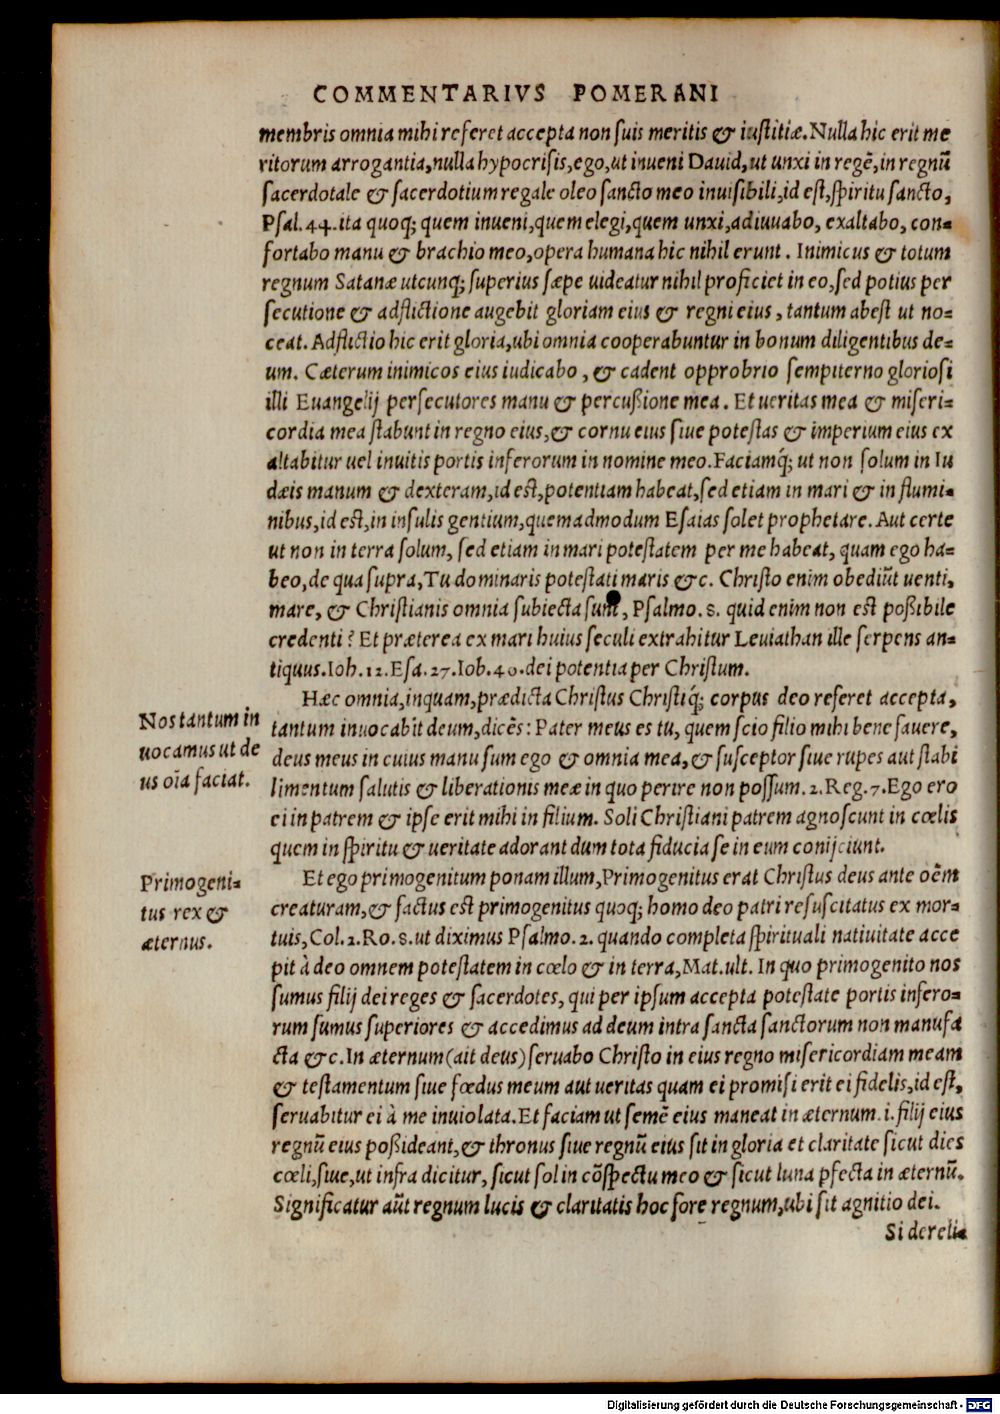 COMMENTARIVS POMERANI
membris omnia mihi referet accepta non suis meritis & iustitiæ. Nulla hic erit me
ritorum arrogantia, nulla hypocrisis, ego, ut inueni Dauid, ut unxi in regē, in regnū
sacerdotale & sacerdotium regale oleo sancto meo inuisibili, id est, spiritu sancto,
Psal. 44. ita quoq; quem inueni, quem elegi, quem unxi, adiuuabo, exaltabo, con-
fortabo manu & brachio meo, opera humana hic nihil erunt. Inimicus & totum
regnum Satanæ utcunq; superius sæpe uideatur nihil proficiet in eo, sed potius per
secutione & adflictione augebit gloriam eius & regni eius, tantum abest ut no-
ceat. Adflictio hic erit gloria, ubi omnia cooperabuntur in bonum diligentibus de-
um. Cæterum inimicos eius iudicabo, & cadent opprobrio sempiterno gloriosi
illi Euangelij persecutores manu & percußione mea. Et ueritas mea & miseri-
cordia mea stabunt in regno eius, & cornu eius siue potestas & imperium eius ex
altabitur uel inuitis portis inferorum in nomine meo. Faciamq́; ut non solum in Iu
dæis manum & dexteram, id est, potentiam habeat, sed etiam in mari & in flumi-
nibus, id est, in insulis gentium, quemadmodum Esaias solet prophetare. Aut certe
ut non in terra solum, sed etiam in mari potestatem per me habeat, quam ego ha-
beo, de qua supra, Tu dominaris potestati maris &c. Christo enim obediūt uenti,
mare, & Christianis omnia subiecta sunt, Psalmo. 8. quid enim non est poßibile
credenti? Et præterea ex mari huius seculi extrahitur Leuiathan ille serpens an-
tiquus. Ioh. 12. Esa. 27. Iob. 40. dei potentia per Christum.
Hæc omnia, inquam, prædicta Christus Christiq́; corpus deo referet accepta,
Nos tantum in
uocamus ut de
us oīa faciat.
tantum inuocabit deum, dicēs: Pater meus es tu, quem scio filio mihi bene fauere,
deus meus in cuius manu sum ego & omnia mea, & susceptor siue rupes aut stabi
limentum salutis & liberationis meæ in quo perire non possum. 2. Reg. 7. Ego ero
ei in patrem & ipse erit mihi in filium. Soli Christiani patrem agnoscunt in cœlis
quem in spiritu & ueritate adorant dum tota fiducia se in eum conijciunt.
Primogeni-
tus rex &
æternus.
Et ego primogenitum ponam illum, Primogenitus erat Christus deus ante oēm
creaturam, & factus est primogenitus quoq; homo deo patri resuscitatus ex mor-
tuis, Col. 1. Ro. 8. ut diximus Psalmo. 2. quando completa spirituali natiuitate acce
pit à deo omnem potestatem in cœlo & in terra, Mat. ult. In quo primogenito nos
sumus filij dei reges & sacerdotes, qui per ipsum accepta potestate portis infero-
rum sumus superiores & accedimus ad deum intra sancta sanctorum non manufa
cta &c. In æternum (ait deus) seruabo Christo in eius regno misericordiam meam
& testamentum siue fœdus meum aut ueritas quam ei promisi erit ei fidelis, id est,
seruabitur ei à me inuiolata. Et faciam ut semē eius maneat in æternum. i. filij eius
regnū eius poßideant, & thronus siue regnū eius sit in gloria et claritate sicut dies
cœli, siue, ut infra dicitur, sicut sol in cōspectu meo & sicut luna pfecta in æternū.
Significatur aūt regnum lucis & claritatis hoc fore regnum, ubi sit agnitio dei.
Si dereli-
Digitalisierung gefördert durch die Deutsche Forschungsgemeinschaft - DFG